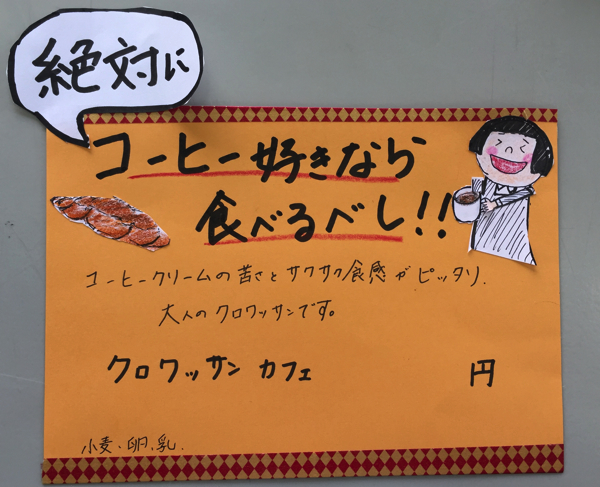 絶対に
コーヒー好きなら
食べるべし!!
コーヒークリームの苦さとサクサク食感がピッタリ.
大人のクロワッサンです。
クロワッサン カフェ 円
小麦、卵、乳.